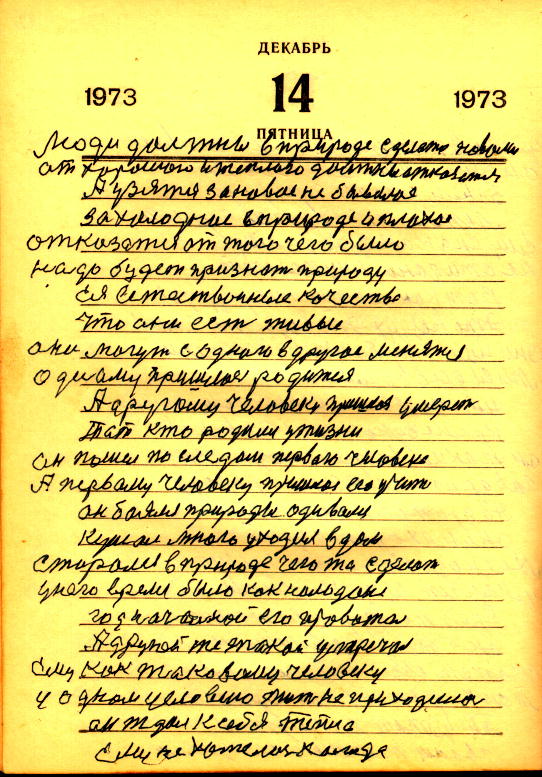 ДЕКАБРЬ
1973 14 1973
ПЯТНИЦА
Люди должны в природе сделать новыми
от хорошего и теплого должны отказатся
А узятся за новое не бывалое
за холодное в природе и плохое
отказатся от того чего было
надо будет признат природу
Ея Естественные качества
что они ест живые
они могут с одного в другое менятся
одному пришлос родится
А другому человеку пришлос умерет
Тот кто родил жизни
он пошел по следам первого человека
А первому человеку пришлос его учит
он боялся природы одивали
кушал много уходил в дом
старался в природе чего то сделат
у него время было как холодане
год начиной его провожал
А другой же такой устречал
Ему как таковому человеку
у одном условено жит не приходилос
он ждал к себя Тепла
Ему не хотелос холода